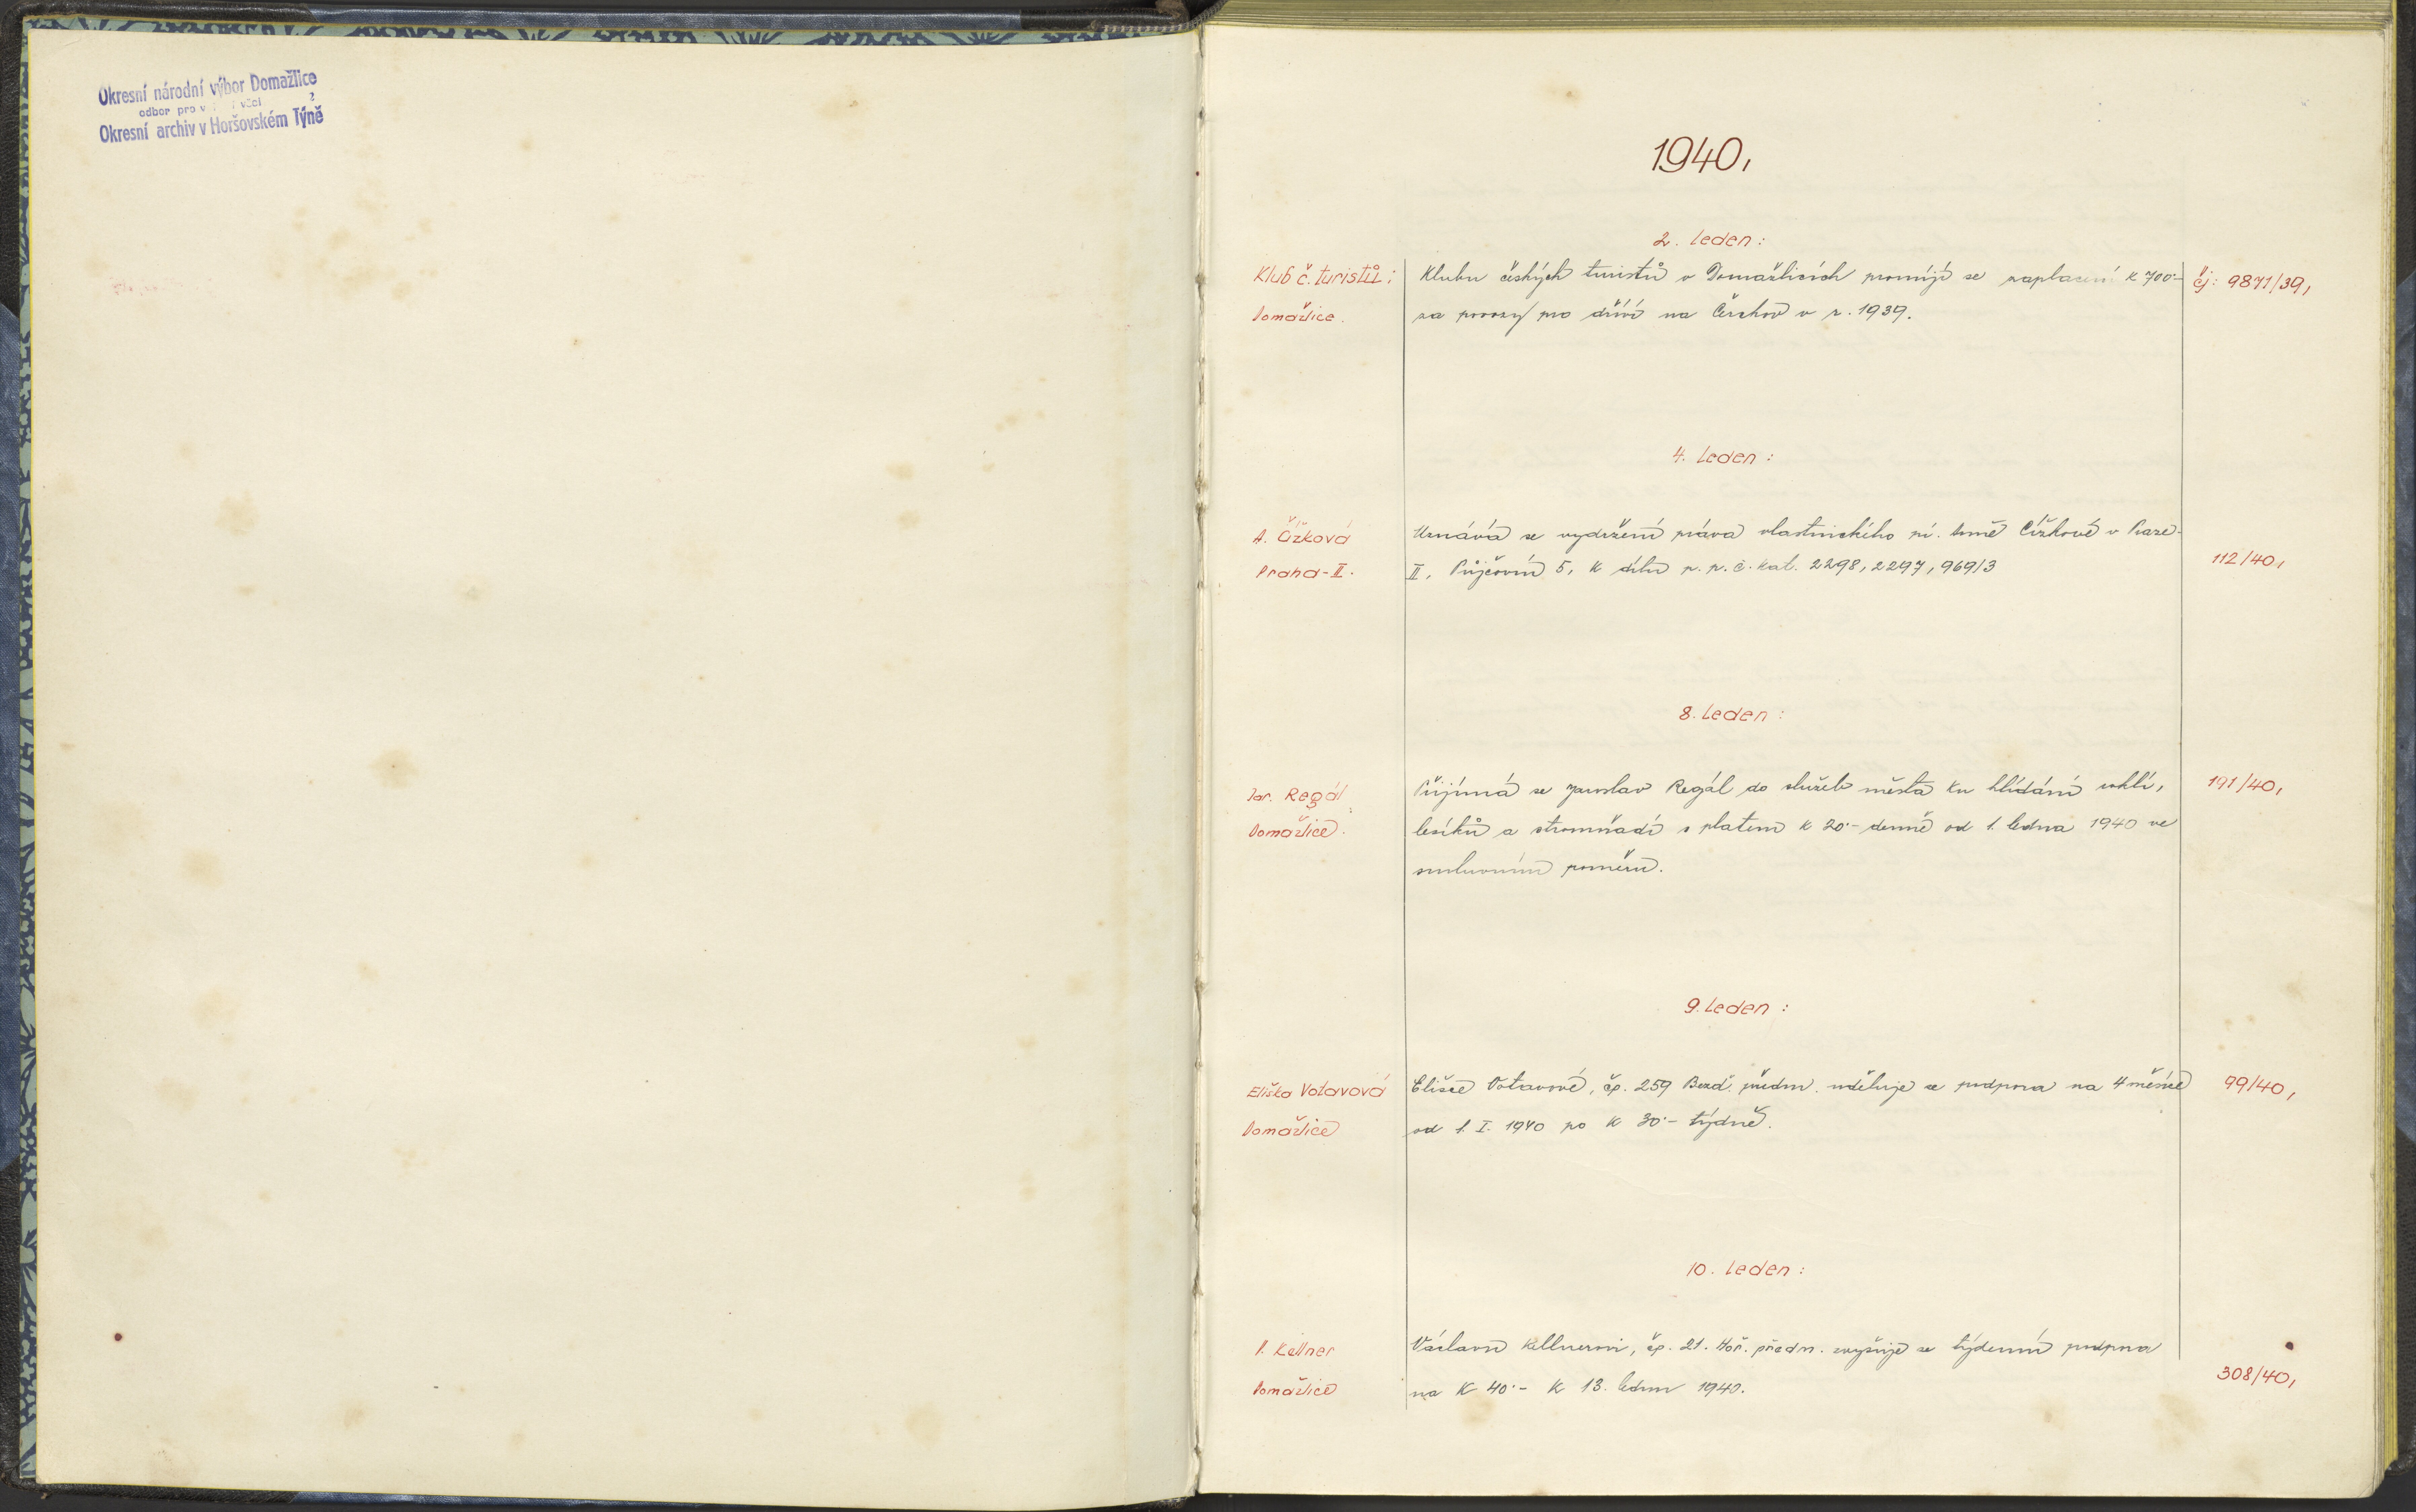 Okresní národní výbor Domažlice
odbor pro v věci
Okresní archiv v Horšovském Týně
1940,
2. leden:
Klub č. turistů: Klubu českých turistů v Domažlicích promíjí se zaplacení K 700·- čj: 9871/39,
Domažlice. za povozy pro dříví na Čerchov v r. 1939.
4. leden:
A. Čížková Uznává se vydržení práva vlastnického pí. Anně Čížkové v Praze-
Praha-II. II, Půjčovní 5, k dílu p. p. č. kat. 2298, 2297, 969/3 112/40,
8. leden:
Jar. Regál Přijímá se Jaroslav Regál do služeb města ku hlídání uhlí, 191/40,
Domažlice. lesíků a stromořadí s platem K 20·- denně od 1. ledna 1940 ve
smluvním poměru.
9. leden:
Eliška Votavová Elišce Votavové, čp. 259 Bezd. předm. uděluje se podpora na 4 měsíce 99/40,
Domažlice od 1. I. 1940 po K 30·- týdně.
10. leden:
V. Kellner Václavu Kellnerovi, čp. 21. Hoř. předm. zvyšuje se týdenní podpora
Domažlice na K 40·- k 13. lednu 1940. 308/40,